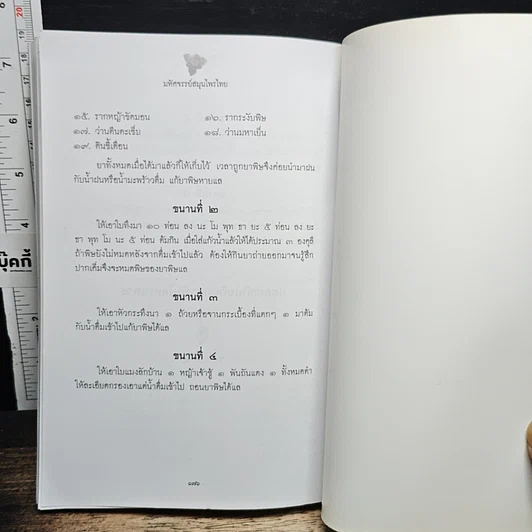 มหัศจรรย์สมุนไพรไทย
๑๕. รากหญ้าขัดมอน ๑๖. รากระงับพิษ
๑๗. ว่านตีนตะเข็บ ๑๘. ว่านมหาเบ็น
๑๙. ดินขี้เดือน
ยาทั้งหมดเมื่อได้มาแล้วก็ให้เก็บไว้ เวลาถูกยาพิษจึงค่อยนำมาฝน
กับน้ำฝนหรือน้ำมะพร้าวดื่ม แก้ยาพิษหายแล
ขนานที่ ๒
ให้เอาใบทึงมา ๑๐ ท่อน ลง นะ โม พุท ธา ยะ ๕ ท่อน ลง ยะ
ธา พุท โม นะ ๕ ท่อน ต้มกิน เมื่อใส่แก้วน้ำแล้วให้ได้ประมาณ ๓ องคุลี
ถ้าพิษยังไม่หมดหลังจากดื่มเข้าไปแล้ว ต้องให้กินยาถ่ายออกมาจนรู้สึก
ปากเค็มจึงจะหมดพิษของยาพิษแล
ขนานที่ ๓
ให้เอาหัวกระทิงนา ๑ ถ้วยหรือจานกระเบื้องที่แตกๆ ๑ มาต้ม
กับน้ำดื่มเข้าไปแก้ยาพิษได้แล
ขนานที่ ๔
ให้เอาใบแมงลักบ้าน ๑ หญ้าเจ้าชู้ ๑ พันธันแดง ๑ ทั้งหมดตำ
ให้ละเอียดกรองเอาแต่น้ำดื่มเข้าไป ถอนยาพิษได้แล
๑๗๖
บุ๊คกี้